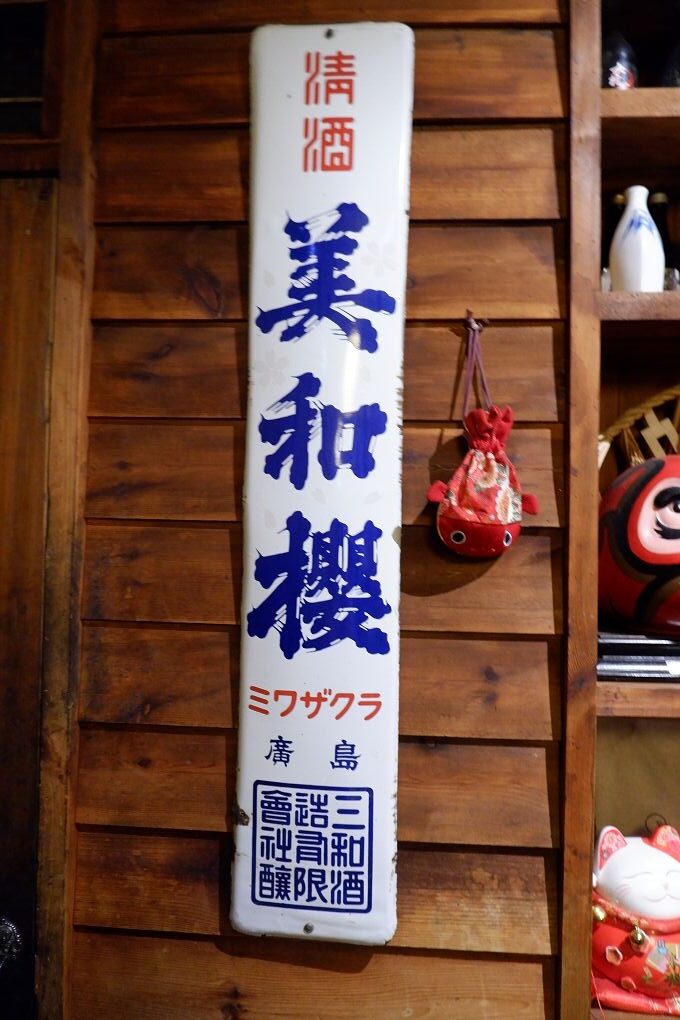 清酒
美和櫻
ミワザクラ
廣島
三和酒
造有限
會社釀